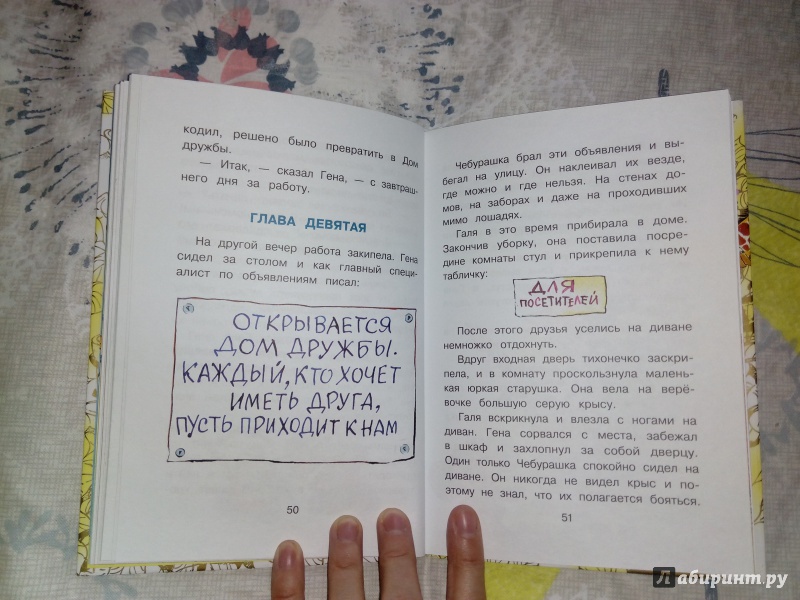 кодил, решено было превратить в Дом
дружбы.
— Итак, — сказал Гена, — с завтраш-
него дня за работу.
ГЛАВА ДЕВЯТАЯ
На другой вечер работа закипела. Гена
сидел за столом и как главный специ-
алист по объявлениям писал:
ОТКРЫВАЕТСЯ
ДОМ ДРУЖБЫ.
КАЖДЫЙ, КТО ХОЧЕТ
ИМЕТЬ ДРУГА,
ПУСТЬ ПРИХОДИТ К НАМ
50
Чебурашка брал эти объявления и вы-
бегал на улицу. Он наклеивал их везде,
где можно и где нельзя. На стенах до-
мов, на заборах и даже на проходивших
мимо лошадях.
Галя в это время прибирала в доме.
Закончив уборку, она поставила посре-
дине комнаты стул и прикрепила к нему
табличку:
ДЛЯ
ПОСЕТИТЕЛЕЙ
После этого друзья уселись на диване
немножко отдохнуть.
Вдруг входная дверь тихонечко заскри-
пела, и в комнату проскользнула малень-
кая юркая старушка. Она вела на верё-
вочке большую серую крысу.
Галя вскрикнула и влезла с ногами на
диван. Гена сорвался с места, забежал
в шкаф и захлопнул за собой дверцу.
Один только Чебурашка спокойно сидел на
диване. Он никогда не видел крыс и по-
этому не знал, что их полагается бояться.
51
Лабиринт.ру